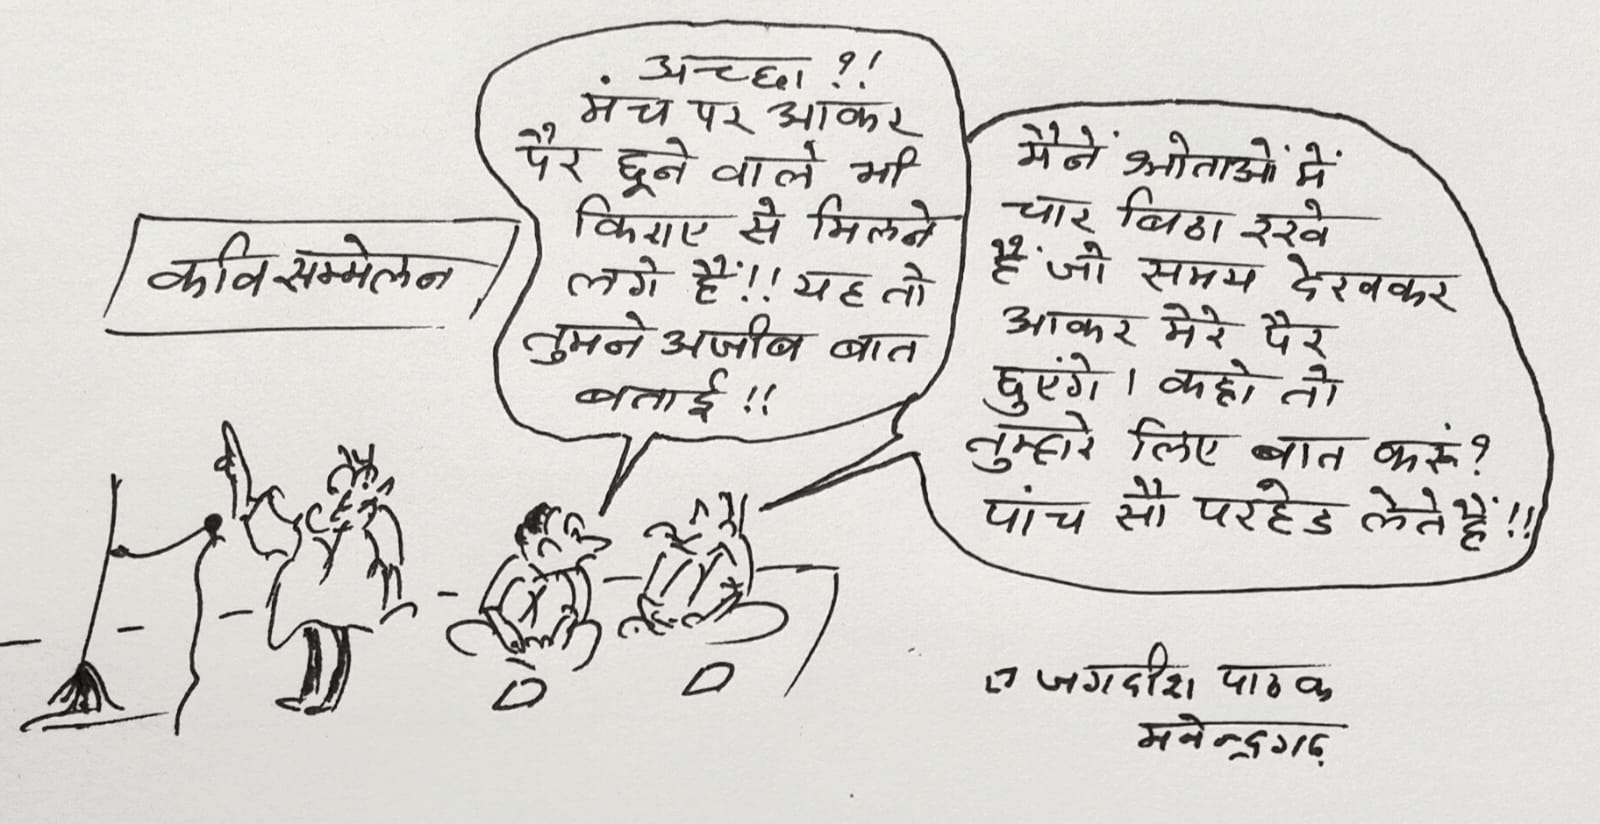 कवि सम्मेलन
अच्छा ?!
मंच पर आकर
पैर छूने वाले भी
किराए से मिलने
लगे हैं!! यह तो
तुमने अजीब बात
बताई !!
मैनें श्रोताओं में
चार बिठा रखे
हैं जो समय देखकर
आकर मेरे पैर
छुएंगे। कहो तो
तुम्हारे लिए बात करूं?
पांच सौ परहेड लेते हैं!!
जगदीश पाठक
मनेन्द्रगढ़